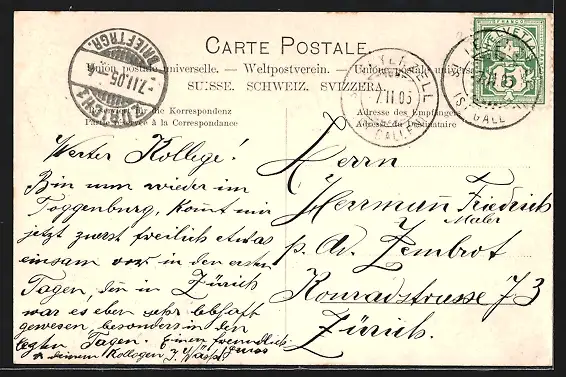 CARTE POSTALE.
Union postale universelle. — Weltpostverein. — Union postale universelle
SUISSE. SCHWEIZ. SVIZZERA.
für die Korrespondenz
à la Correspondance
Adresse des Empfängers
Adresse du Destinataire
BRIEFTRGR.
-7.II.05.-
7 II 05
HELVETIA
FRANCO
5
(ST. GALL
Werter Kollege!
Bin nun wieder im
Toggenburg, kommt mir
jetzt zwar freilich etwas
einsam vor in den ersten
Tagen, den in Zürich
war es eben sehr lebhaft
gewesen, besonders in den
letzten Tagen. Einen freundlich.
deinem Kollegen J.
Herrn
Herrmann Friedrich
Maler
p. Ad. Zembrot
Konradstrasse 73
Zürich.